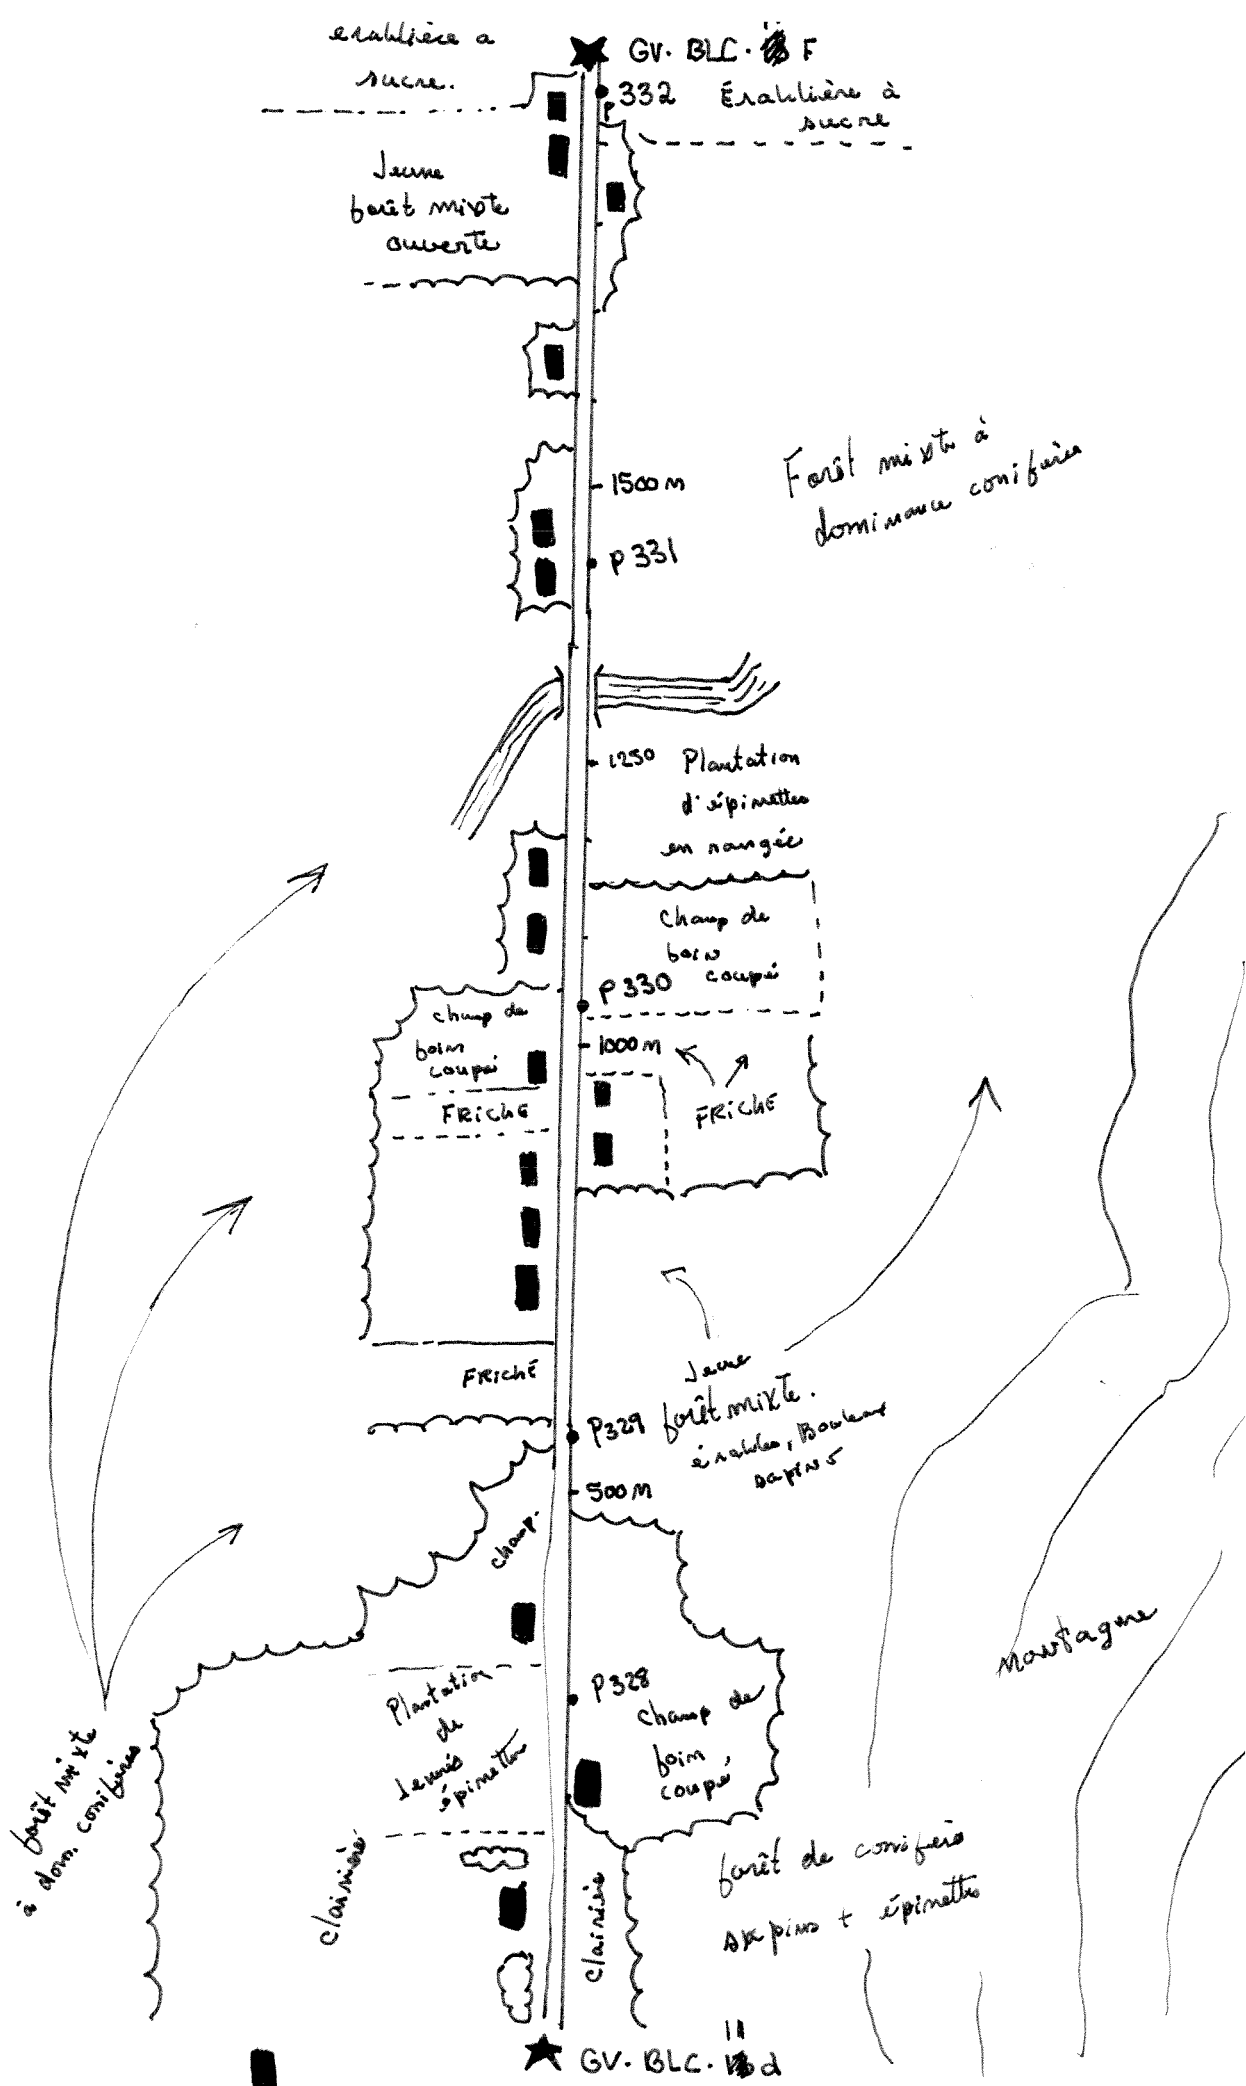 erablière a
sucre.
GV. BLC. F
P 332
Érablière à
sucre
Jeune
forêt mixte
ouverte
Forêt mixte à
dominance conifères
1500 m
P 331
1250
Plantation
d'épinettes
en rangée
champ de
foin
coupé
P 330
champ de
foin
coupé
1000 m
FRICHE
FRICHE
FRICHE
Jeune
forêt mixte.
érables, Bouleaux
sapins
P329
500 m
champ.
montagne
P328
Plantation
de
Jeunes
épinettes
champ de
foin
coupé
forêt mixte
à dom. conifères
clairière
clairière
forêt de conifères
sapins + épinettes
GV. BLC. 11 d